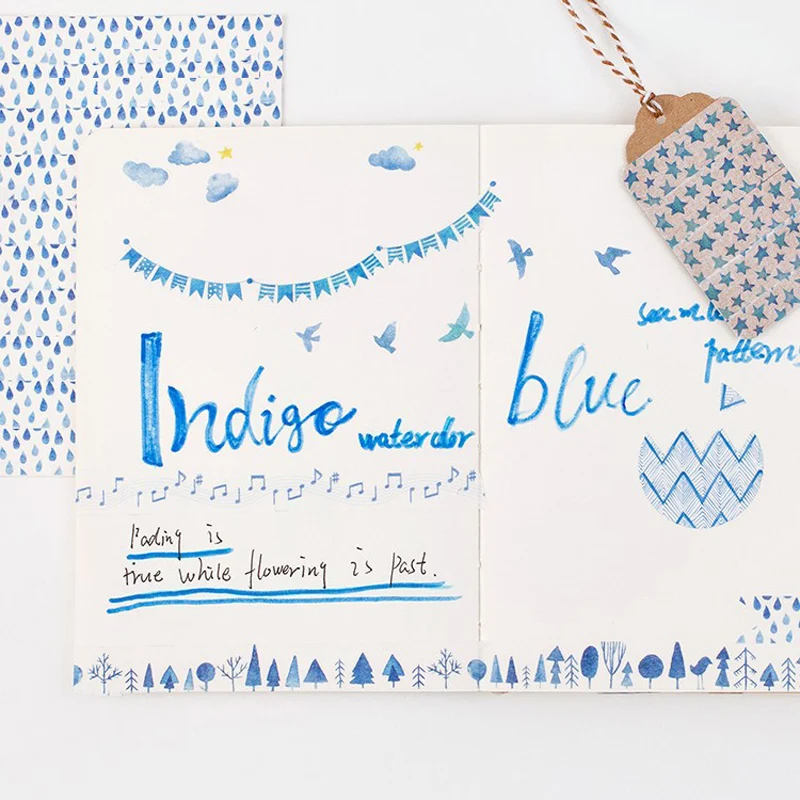 Indigo
watercolor
blue
patterns
Fading is
true while flowering is past.